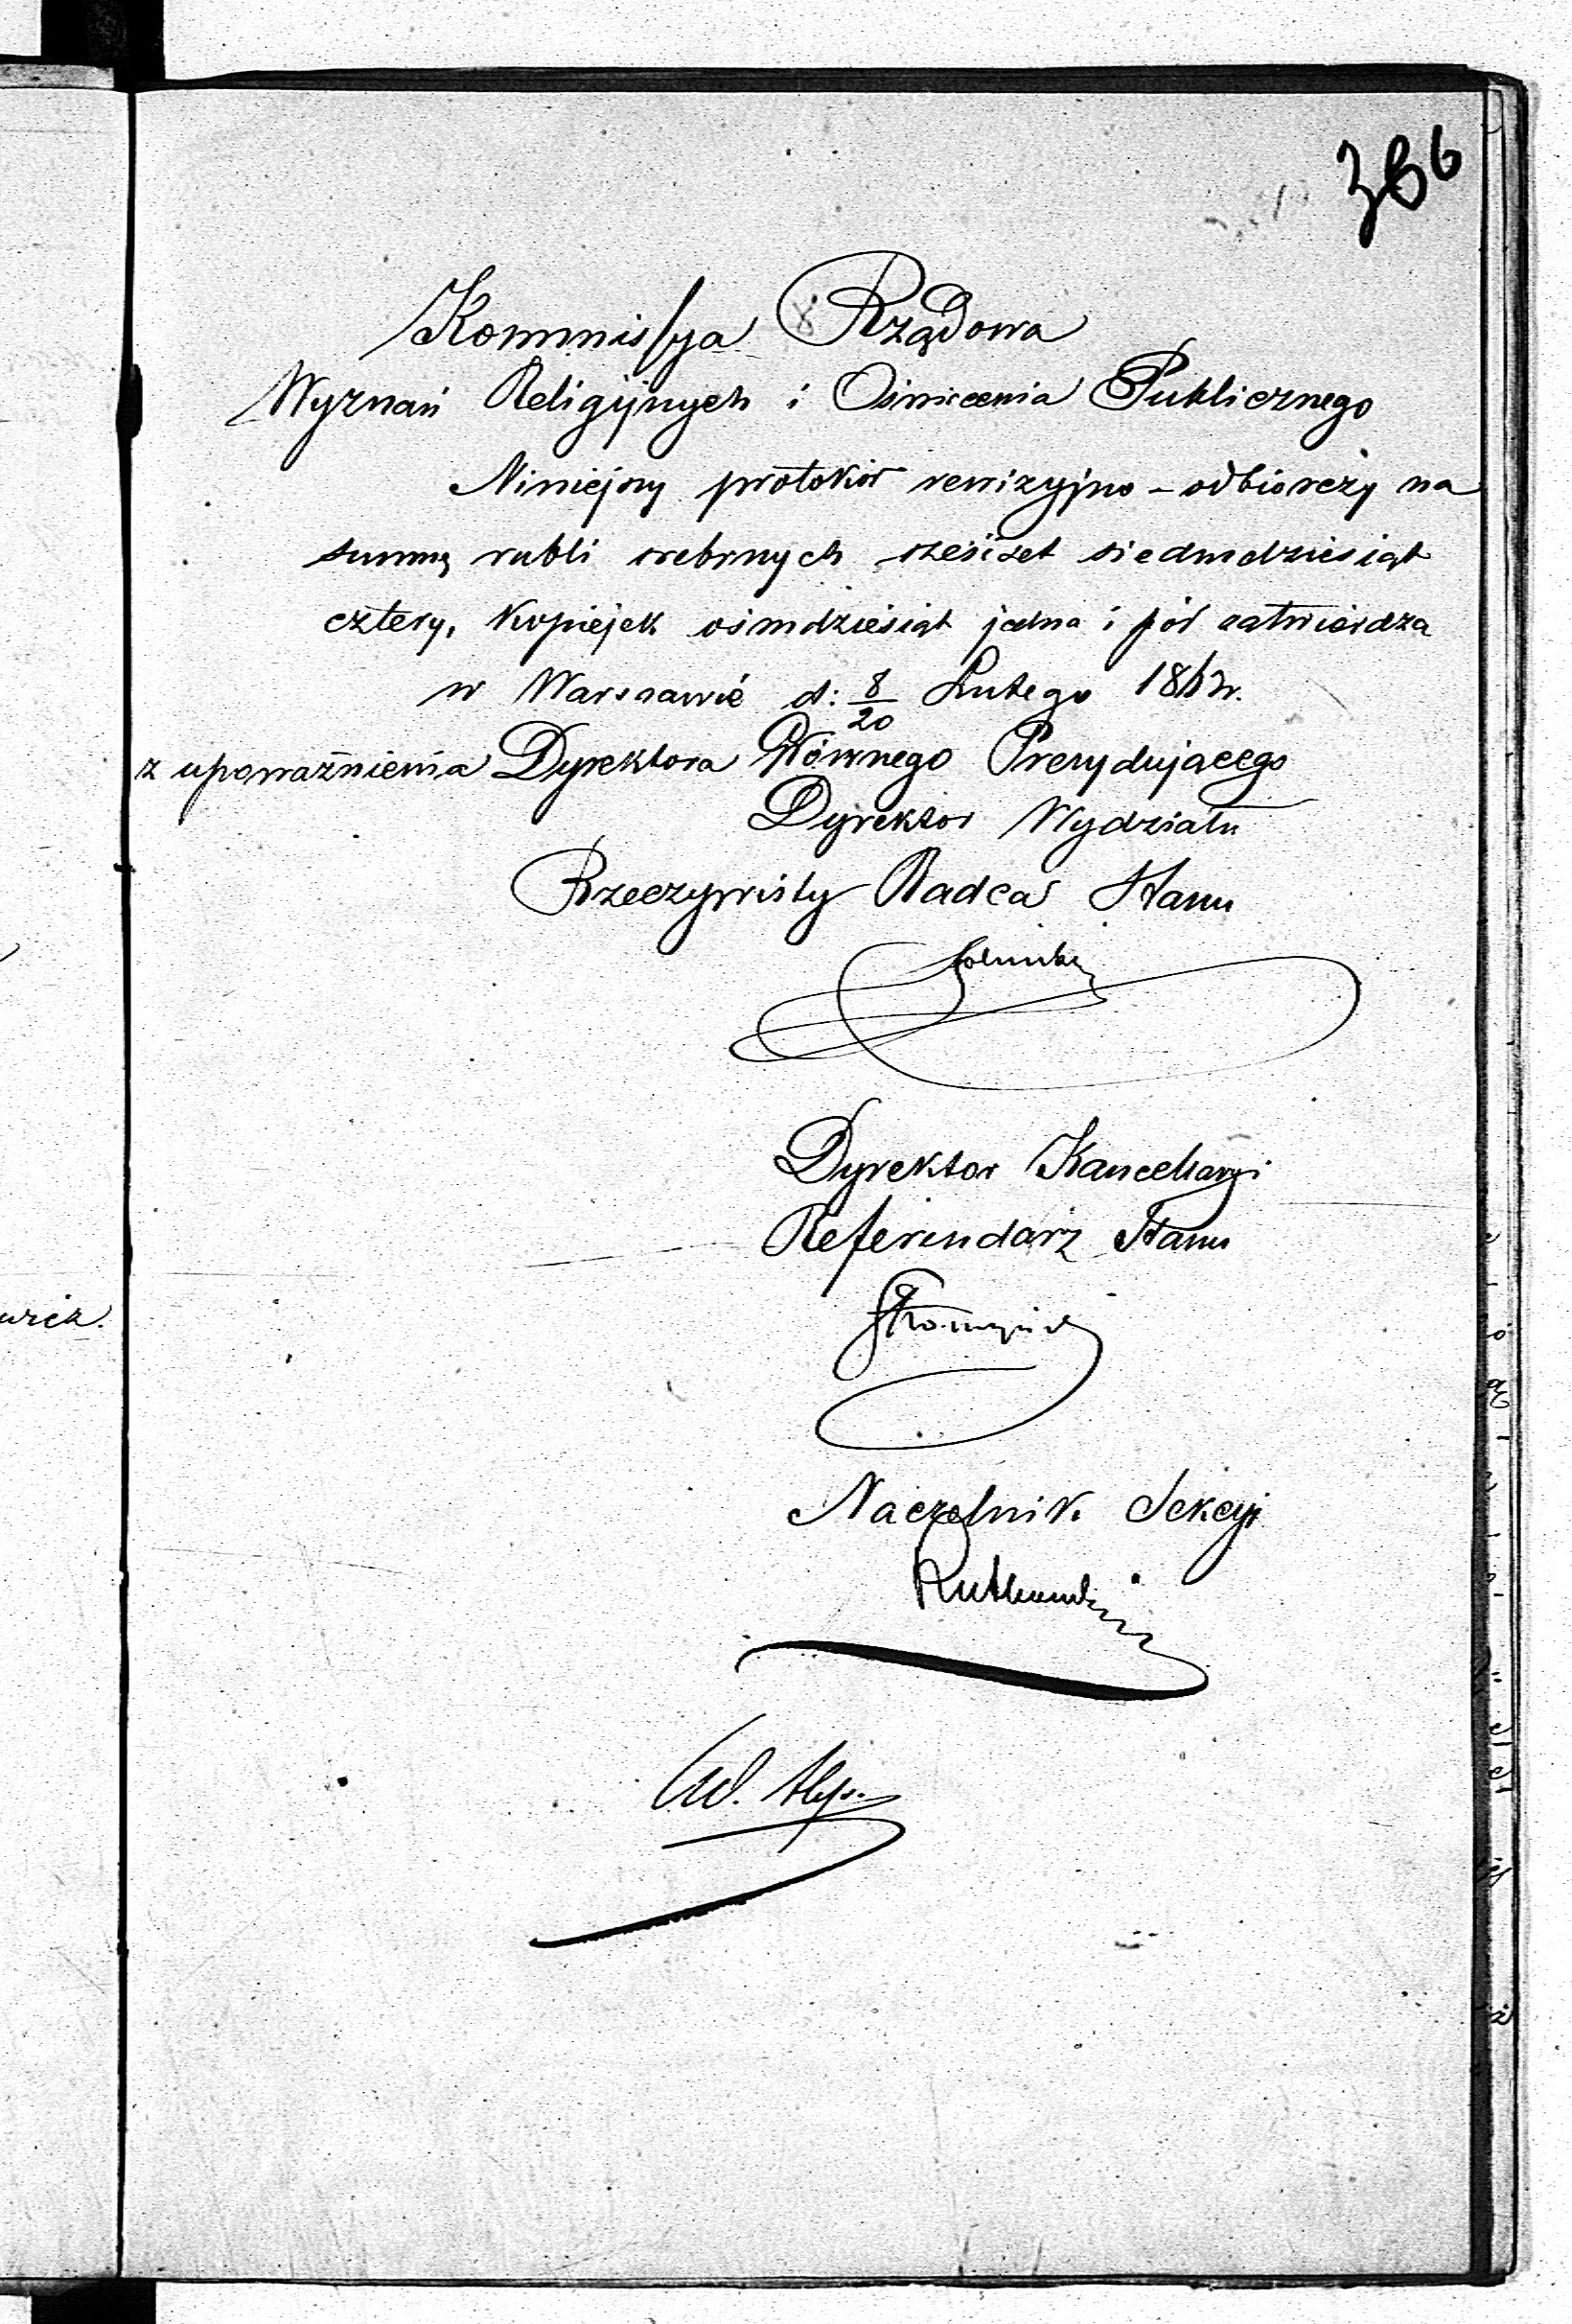 366
Kommissya Rządowa
Wyznań Religijnych i Oświecenia Publicznego
Niniejszy protokół rewizyjno-odbiorczy na
summę rubli srebrnych sześćset siedmdziesiąt
cztery, kopiejek ośmdziesiąt jedna i pół zatwierdza
w Warszawie d: 8/20 Lutego 1862 r.
z upoważnienia Dyrektora Głównego Prezydującego
Dyrektor Wydziału
Rzeczywisty Radca Stanu
Dyrektor Kancellaryi
Referendarz Stanu
Naczelnik Sekcyi
Rutkowski